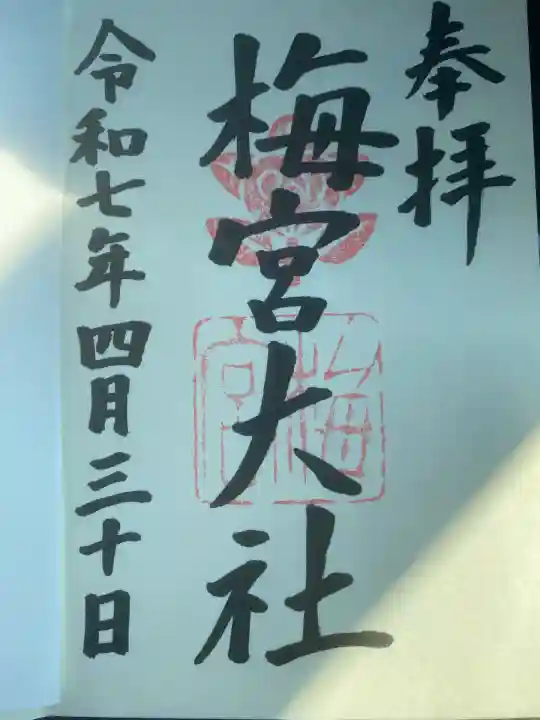 奉拝
梅宮大社
令和七年四月三十日
梅宮